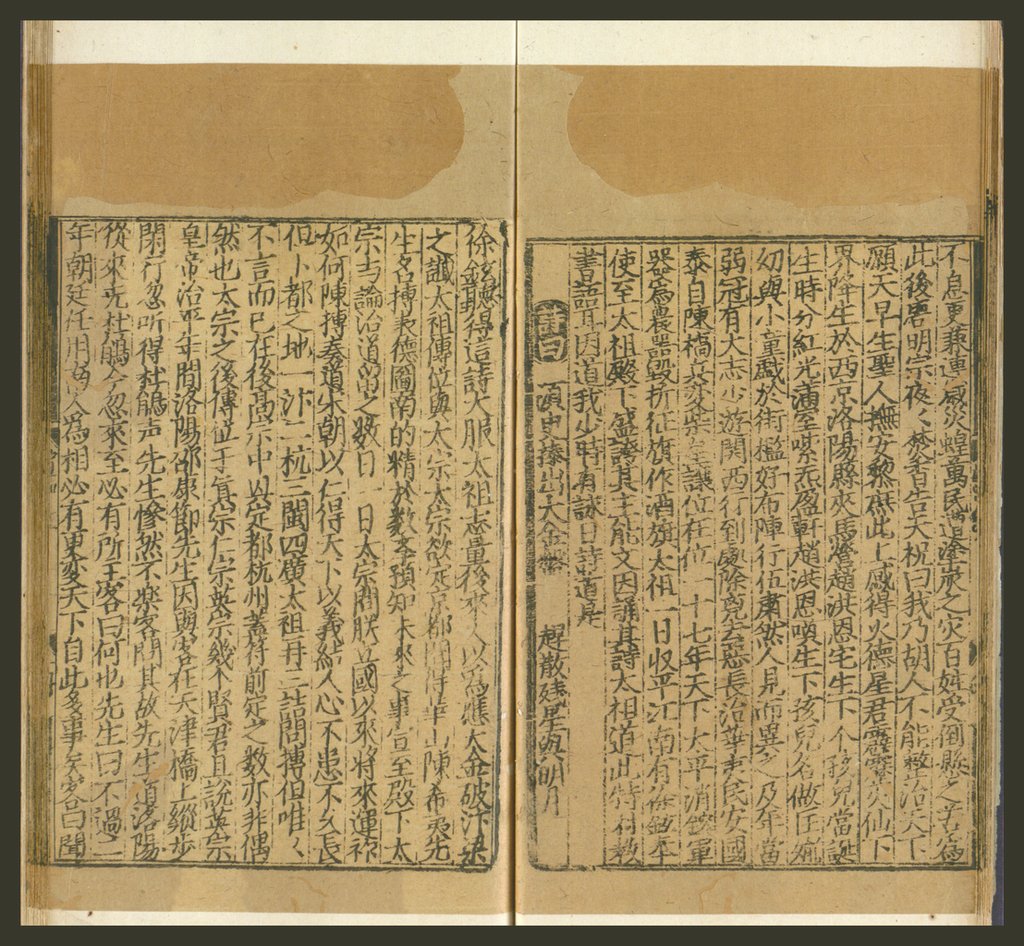 不息更兼連歲災蝗萬民遭塗炭之灾百姓受倒懸之苦為
此後唐明宗夜〻焚香告天祝曰我乃胡人不能整治天下
願天早生聖人撫安黎庶此上感得火德星君霹靂大仙下
界降生於西京洛陽縣夾馬營趙洪恩宅生下一个孩兒當誕
生時分紅光滿室紫氣盈軒趙洪恩喚生下孩兒名做匡胤
幼與小童戲於街檻好布陣行伍肅然人見而異之及年當
弱冠有大志少游關西行到處除兇去惡長治華夷民安國
泰自陳橋兵變柴主讓位在位一十七年天下大平消鎔軍
器為農器毀折征旗作酒旗太祖一日收平江南有徐鉉奉
使至太祖殿下盛誇其主能文因誦其詩太祖道此特村教
書語耳因道我少時有詠日詩道是
詩曰 須臾捧出大金盤 趕散殘星與明月
徐鉉聽得這詩大服太祖志量後來人以為應大金破汴梁
之讖太祖傳位與太宗太宗欲定京都聞得華山陳希夷先
生名摶表德圖南的精於數學預知未來之事宣至殿下太
宗与論治道留之數日一日太宗問朕立國以來將來運祚
如何陳摶奏道宋朝以仁得天下以義結人心不患不久長
但卜都之地一汴二杭三閩四廣太祖再三詰問摶但唯〻
不言而已在後高宗中興定都杭州蓋符前定之數亦非偶
然也太宗之後傳位于真宗仁宗英宗幾个賢君且說英宗
皇帝治平年間洛陽邵康節先生因與客在天津橋上縱步
閑行忽听得杜鵑声先生慘然不樂客問其故先生道洛陽
從來无杜鵑今忽來至必有所主客曰何也先生曰不過二
年朝廷任用南人為相必有更變天下自此多事矣客曰聞